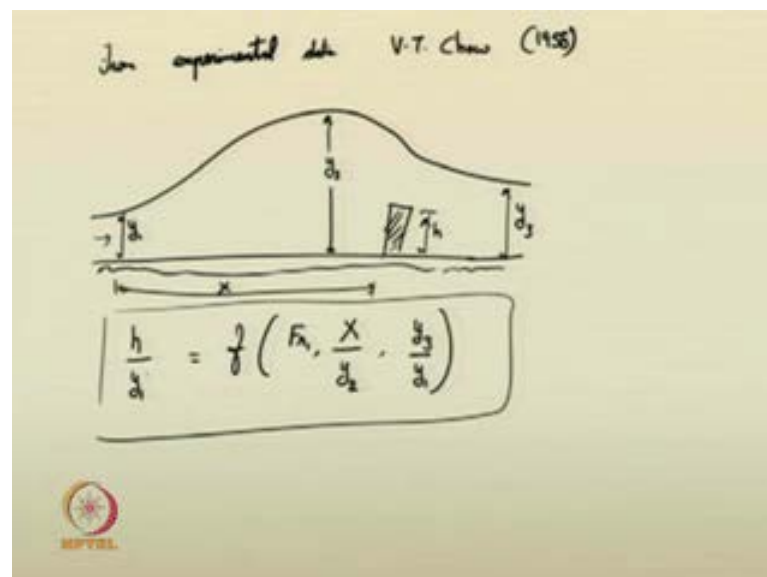 From experimental data V.T. Chow (1958)
y₂
y₁
h
y₃
X
h/y₁ = f(Fr₁, X/y₂, y₃/y₁)
NPTEL